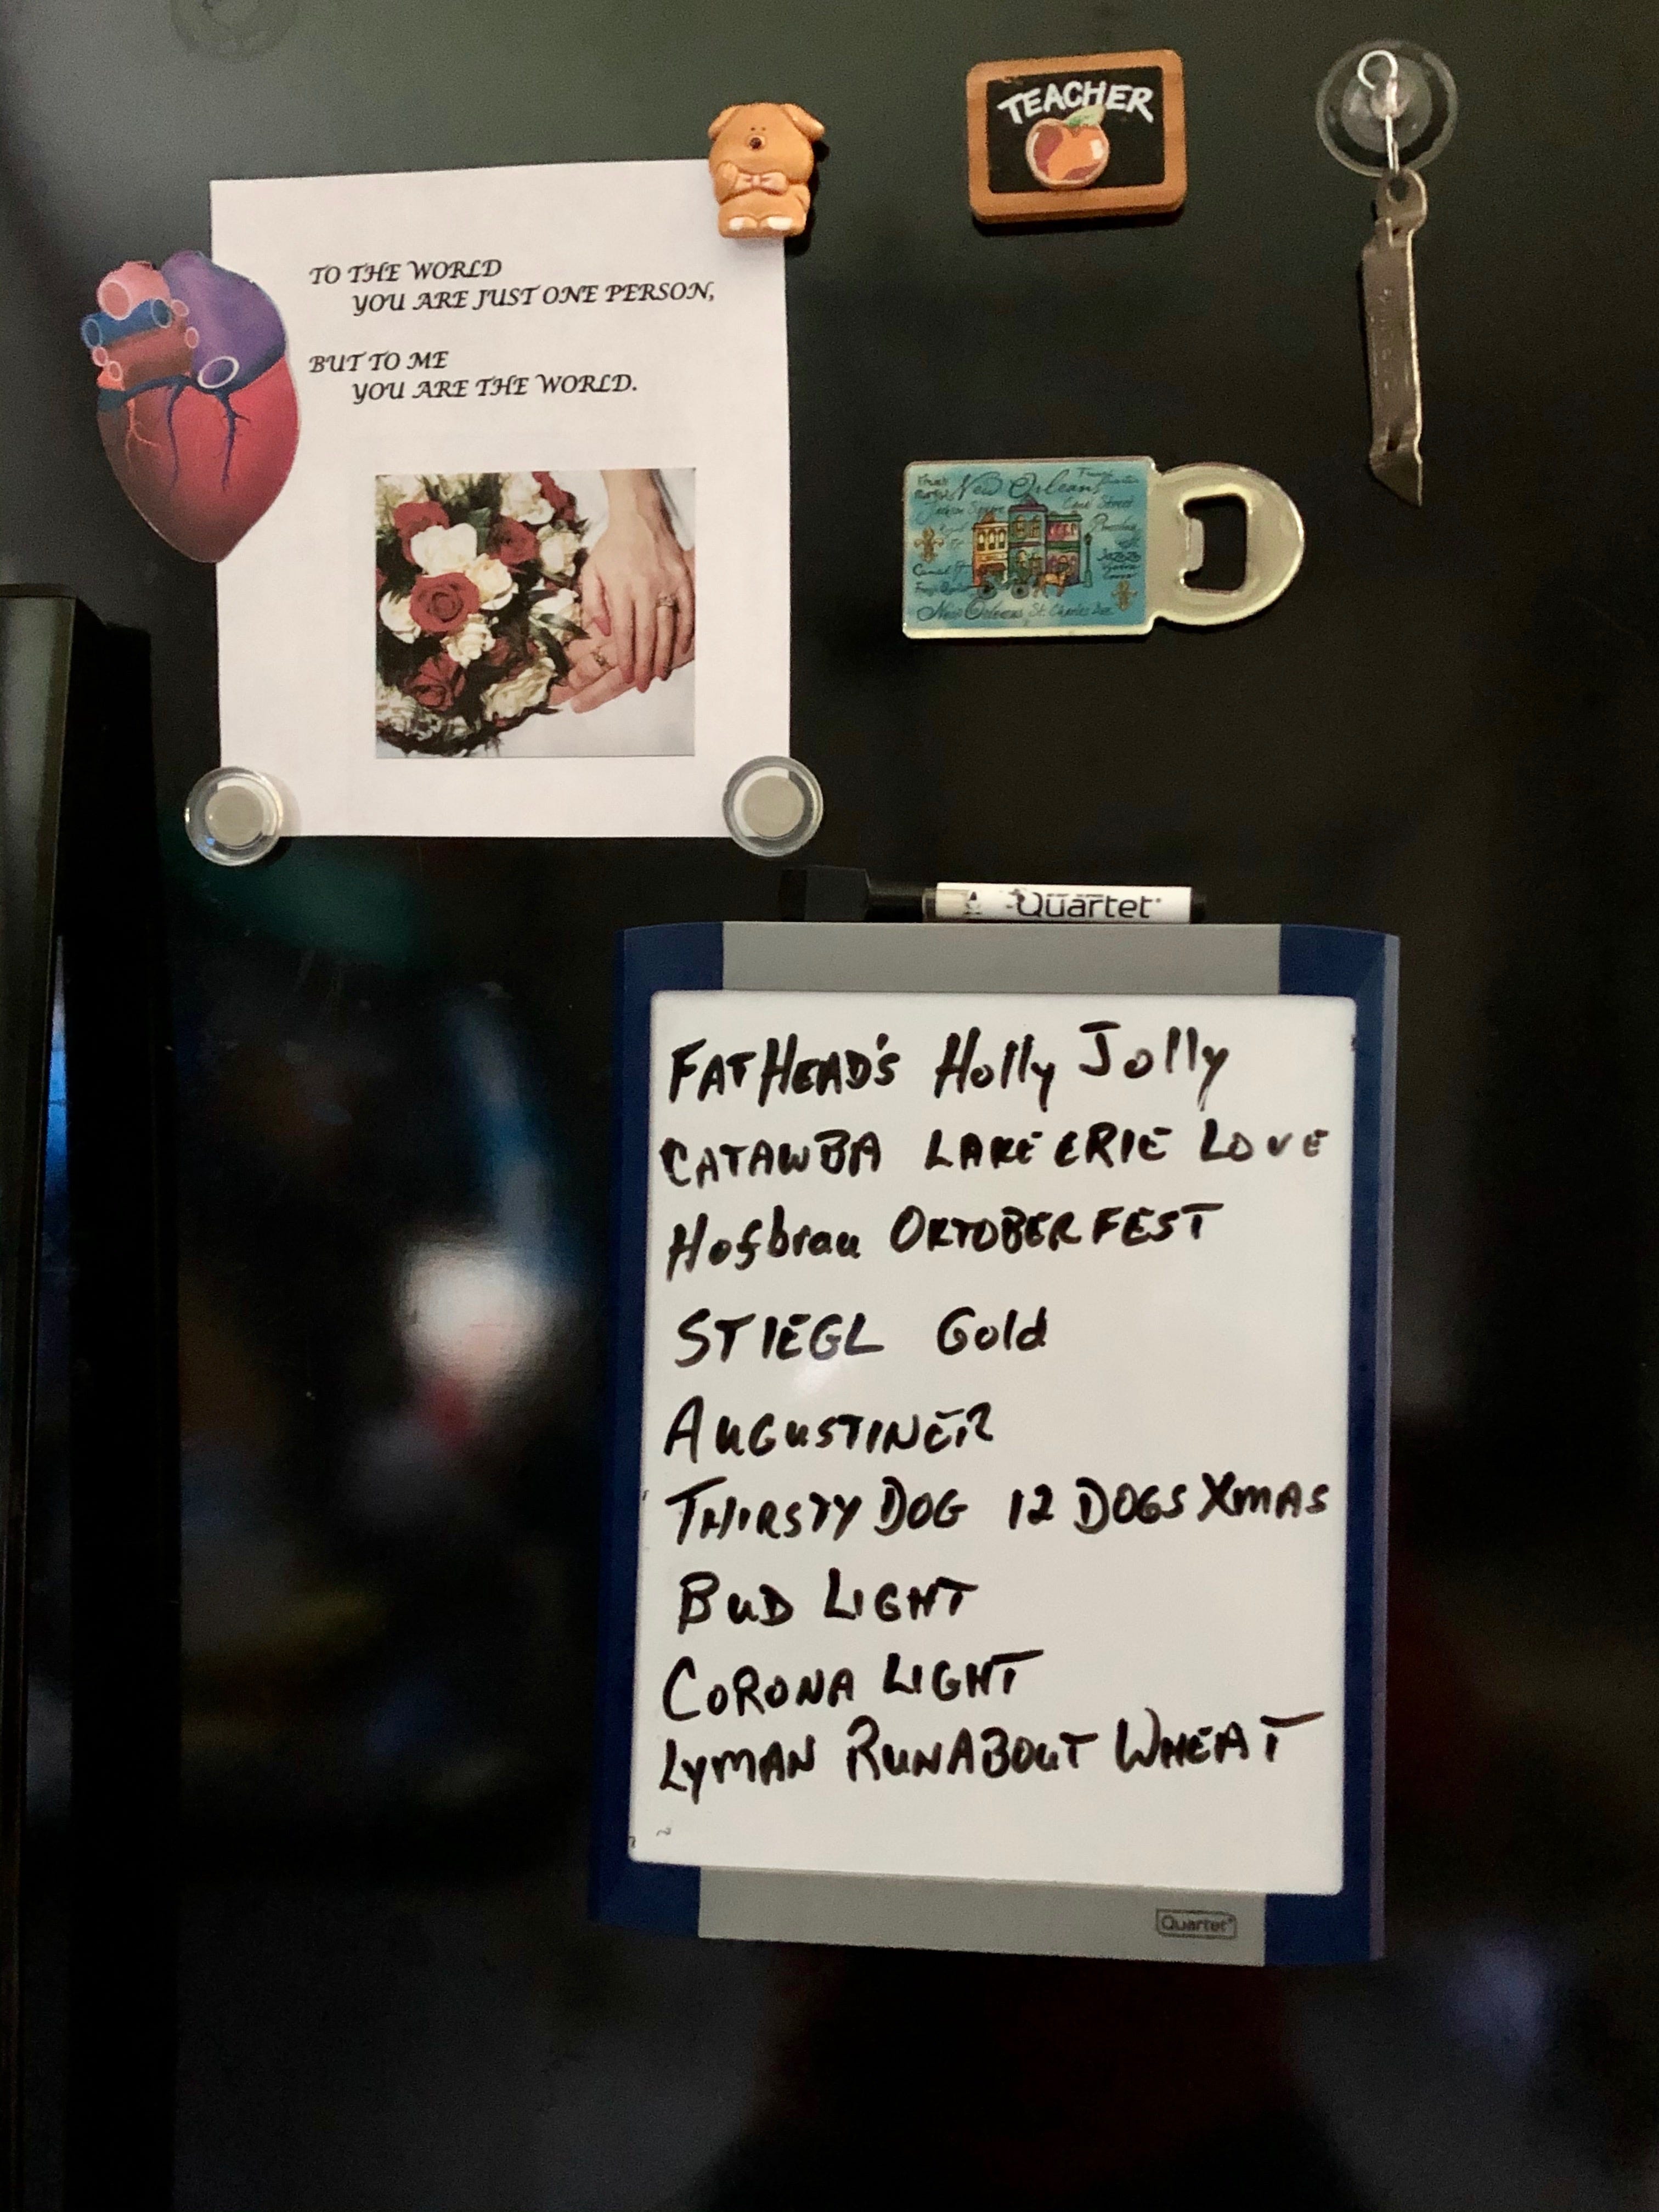 TEACHER
TO THE WORLD
YOU ARE JUST ONE PERSON,
BUT TO ME
YOU ARE THE WORLD.
New Orleans
Jackson Square
New Orleans St. Charles Ave.
Quartet
FATHEAD'S Holly Jolly
CATAWBA LAKE ERIE LOVE
Hofbrau OKTOBERFEST
STIEGL Gold
AUGUSTINER
THIRSTY DOG 12 DOGS XMAS
BUD LIGHT
CORONA LIGHT
LYMAN RUNABOUT WHEAT
Quartet